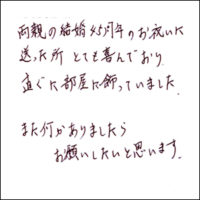 両親の結婚45周年のお祝いに
送った所 とても喜んでおり
直ぐに部屋に飾っていました。
また何かありましたら
お願いしたいと思います。